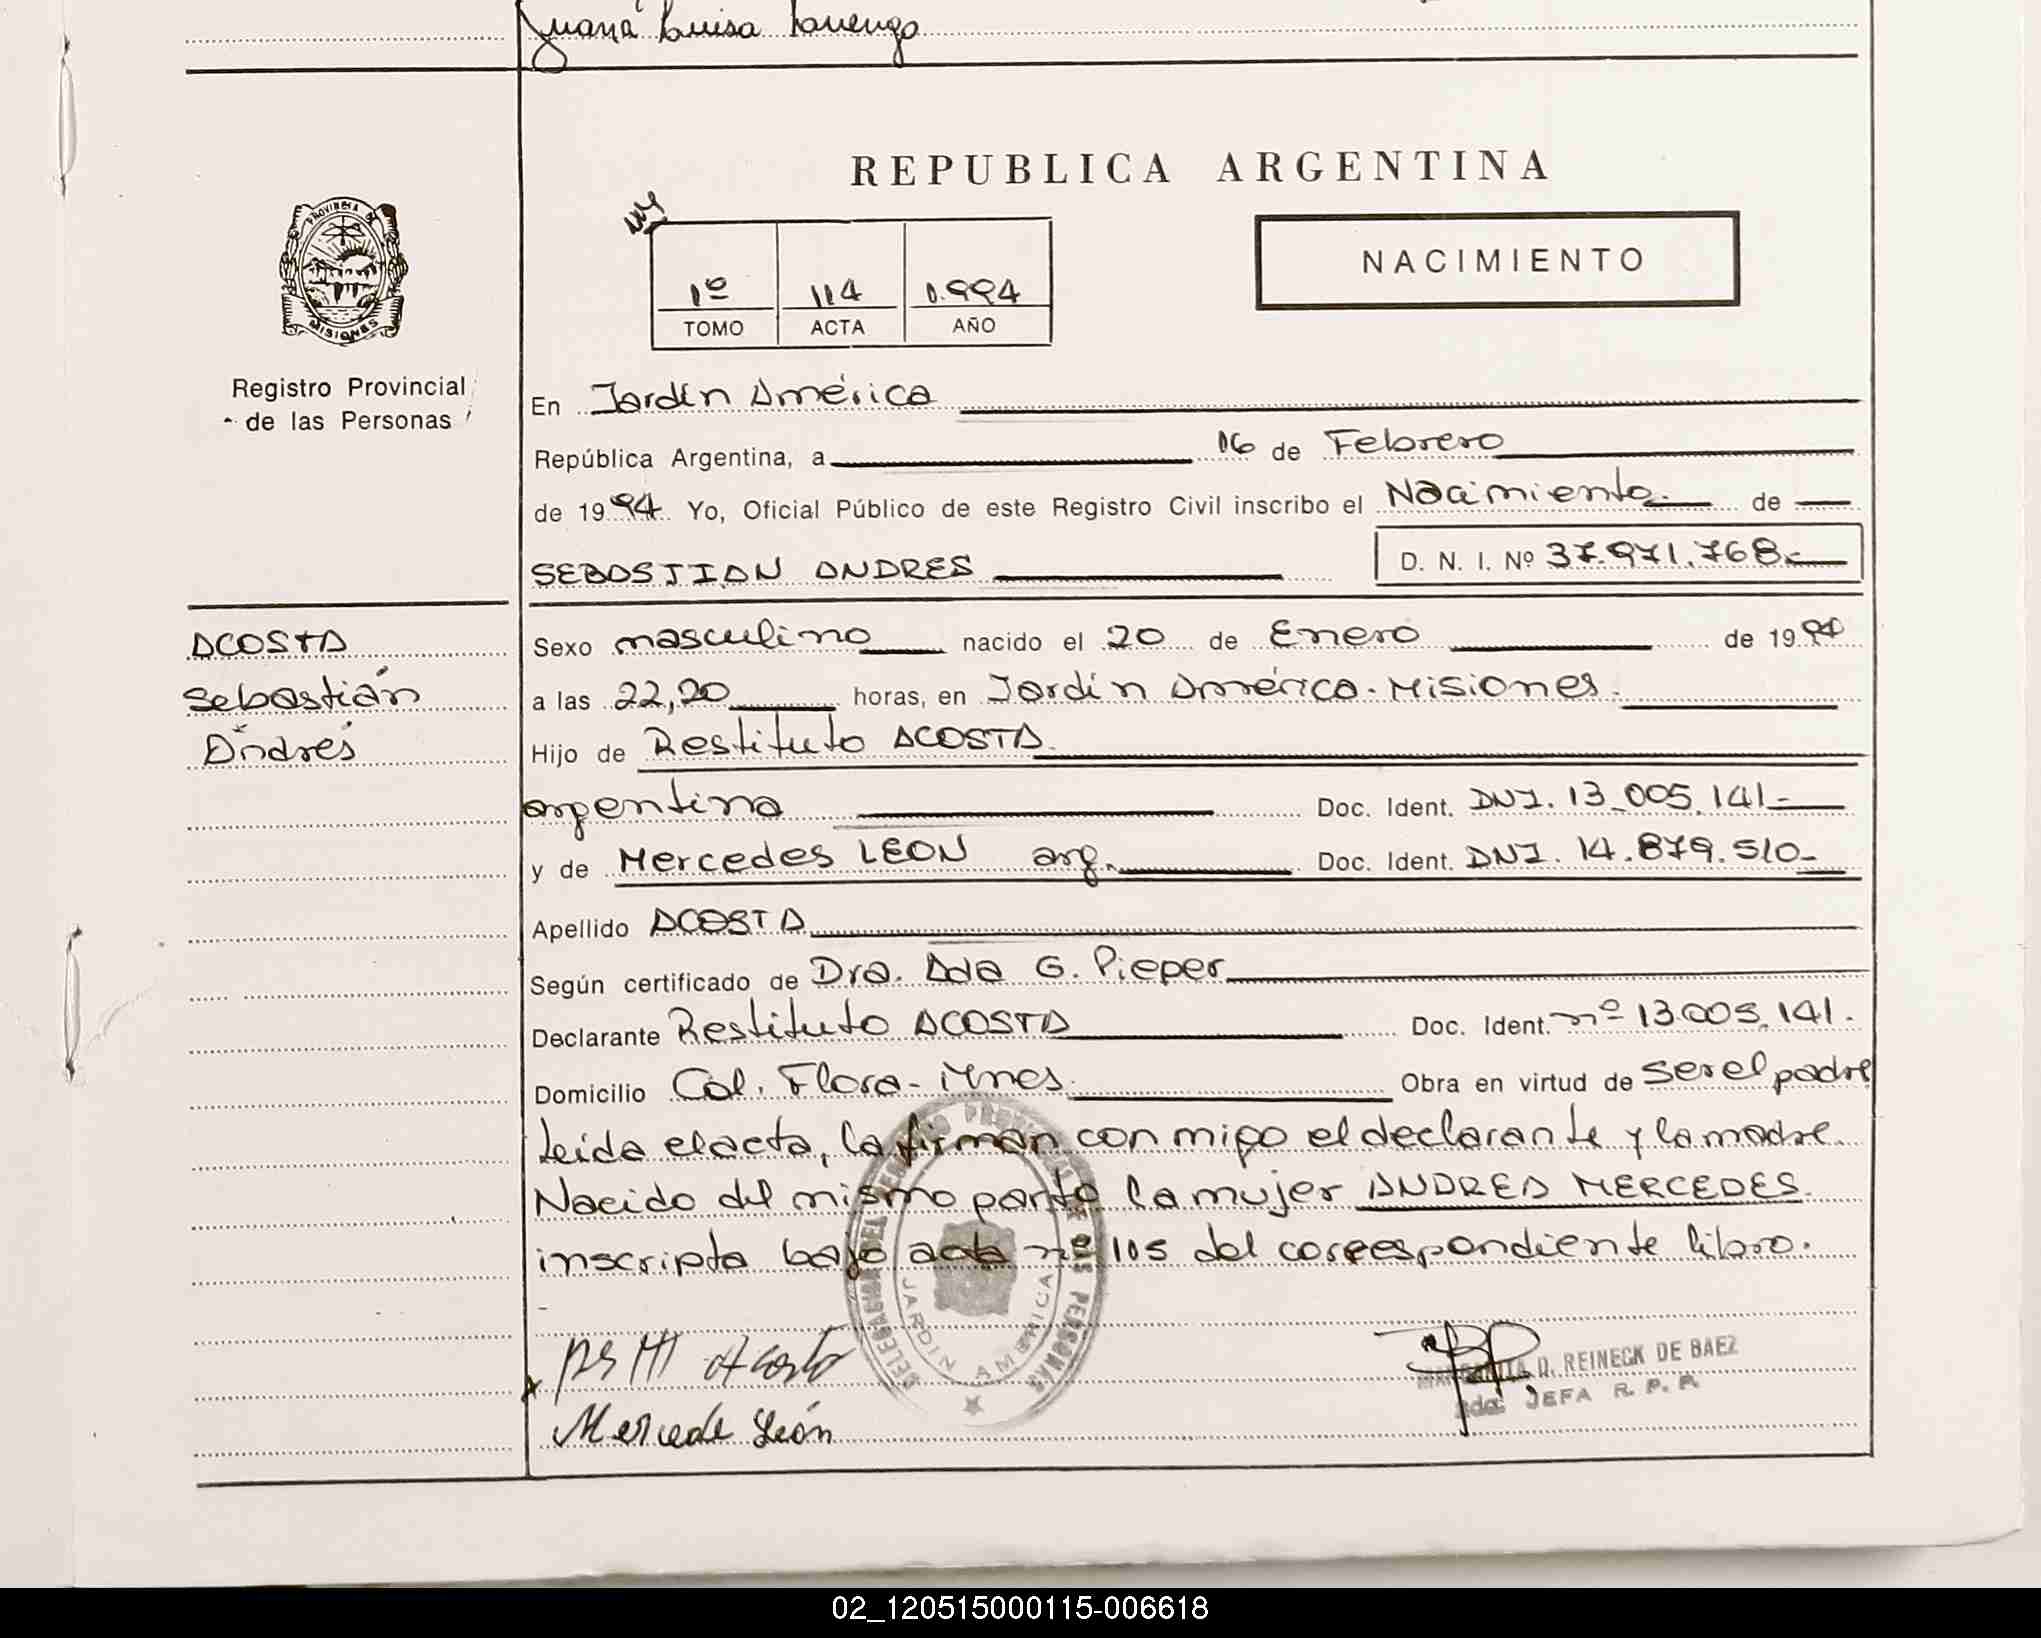 Juana Luisa
REPUBLICA ARGENTINA
NACIMIENTO
1º 114 1.994
TOMO ACTA AÑO
PROVINCIA DE
MISIONES
Registro Provincial
de las Personas
En Jardín América
República Argentina, a 16 de Febrero
de 1994 Yo, Oficial Público de este Registro Civil inscribo el Nacimiento de
SEBASTIAN ANDRES D. N. I. Nº 37.971.768.-
ACOSTA
Sebastián
Andrés
Sexo masculino nacido el 20 de Enero de 1994
a las 22,20 horas, en Jardín América - Misiones.
Hijo de Restituto ACOSTA.
argentina Doc. Ident. DNI. 13.005.141-
y de Mercedes LEON arg. Doc. Ident. DNI. 14.879.510-
Apellido ACOSTA
Según certificado de Dra. Ada G. Pieper
Declarante Restituto ACOSTA Doc. Ident. nº 13.005.141.
Domicilio Col. Flora - Mnes. Obra en virtud de ser el padre
Leída el acta, la firman conmigo el declarante y la madre.
Nacido del mismo parto la mujer ANDREA MERCEDES.
inscripta bajo acta nº 105 del correspondiente libro.
DELEGACION DEL REGISTRO PROVINCIAL DE LAS PERSONAS
JARDIN AMERICA
Acosta
Mercede León
MARGARITA D. REINECK DE BAEZ
2da. JEFA R. P. P.
02_120515000115-006618